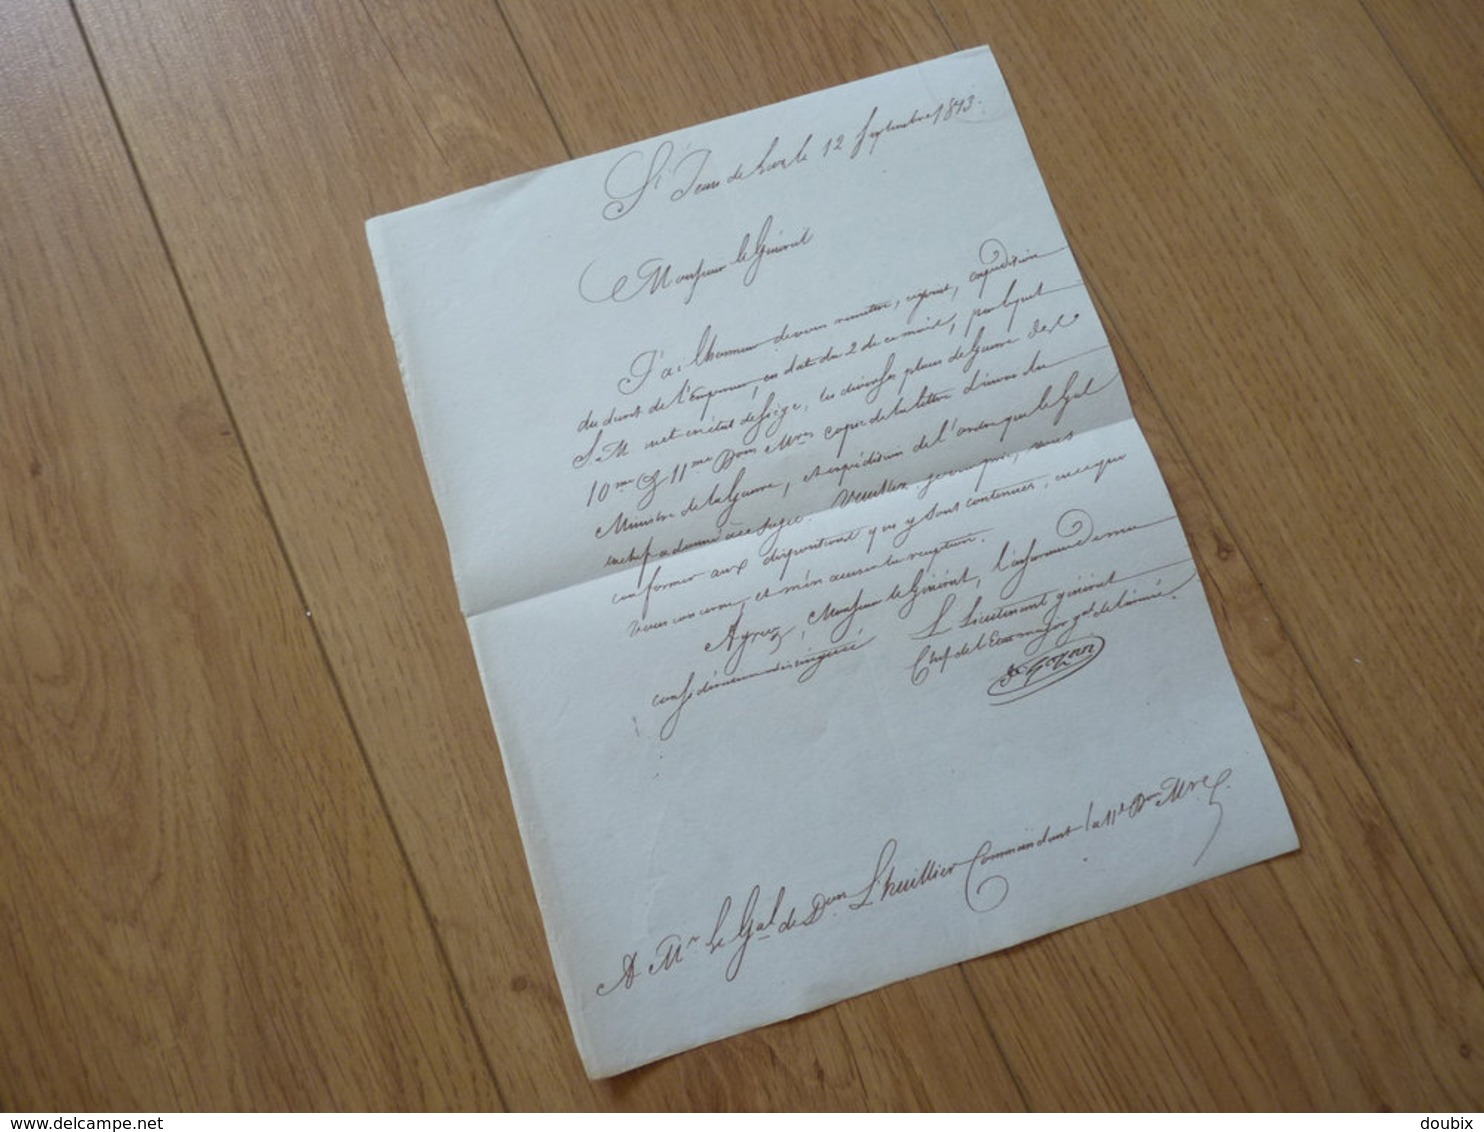 St Jean de Luz le 12 Septembre 1813.
Monsieur le Général
J'ai l'honneur de vous remettre, cijoint, expédition
du décret de l'Empereur, en date du 2 de ce mois, par lequel
S. M. met en état de Siège, les diverses places de Guerre de la
10me & 11me Dons Mres copie de la lettre d'envoi du
Ministre de la Guerre, et expédition de l'ordre que le Gal
en chef a donné à ce sujet. Veuillez, je vous prie, vous
conformer aux dispositions qui y sont contenues, en ce qui
vous concerne, et m'en accuser la réception.
Agréez, Monsieur le Général, l'assurance de ma
considération distinguée
Le Lieutenant général
Chef de l'Etat major gal de l'armée.
Cte Gazan
A Mr le Gal de Don L'huillier Commandant la 11e Don Mre
delcampe.net
doubix